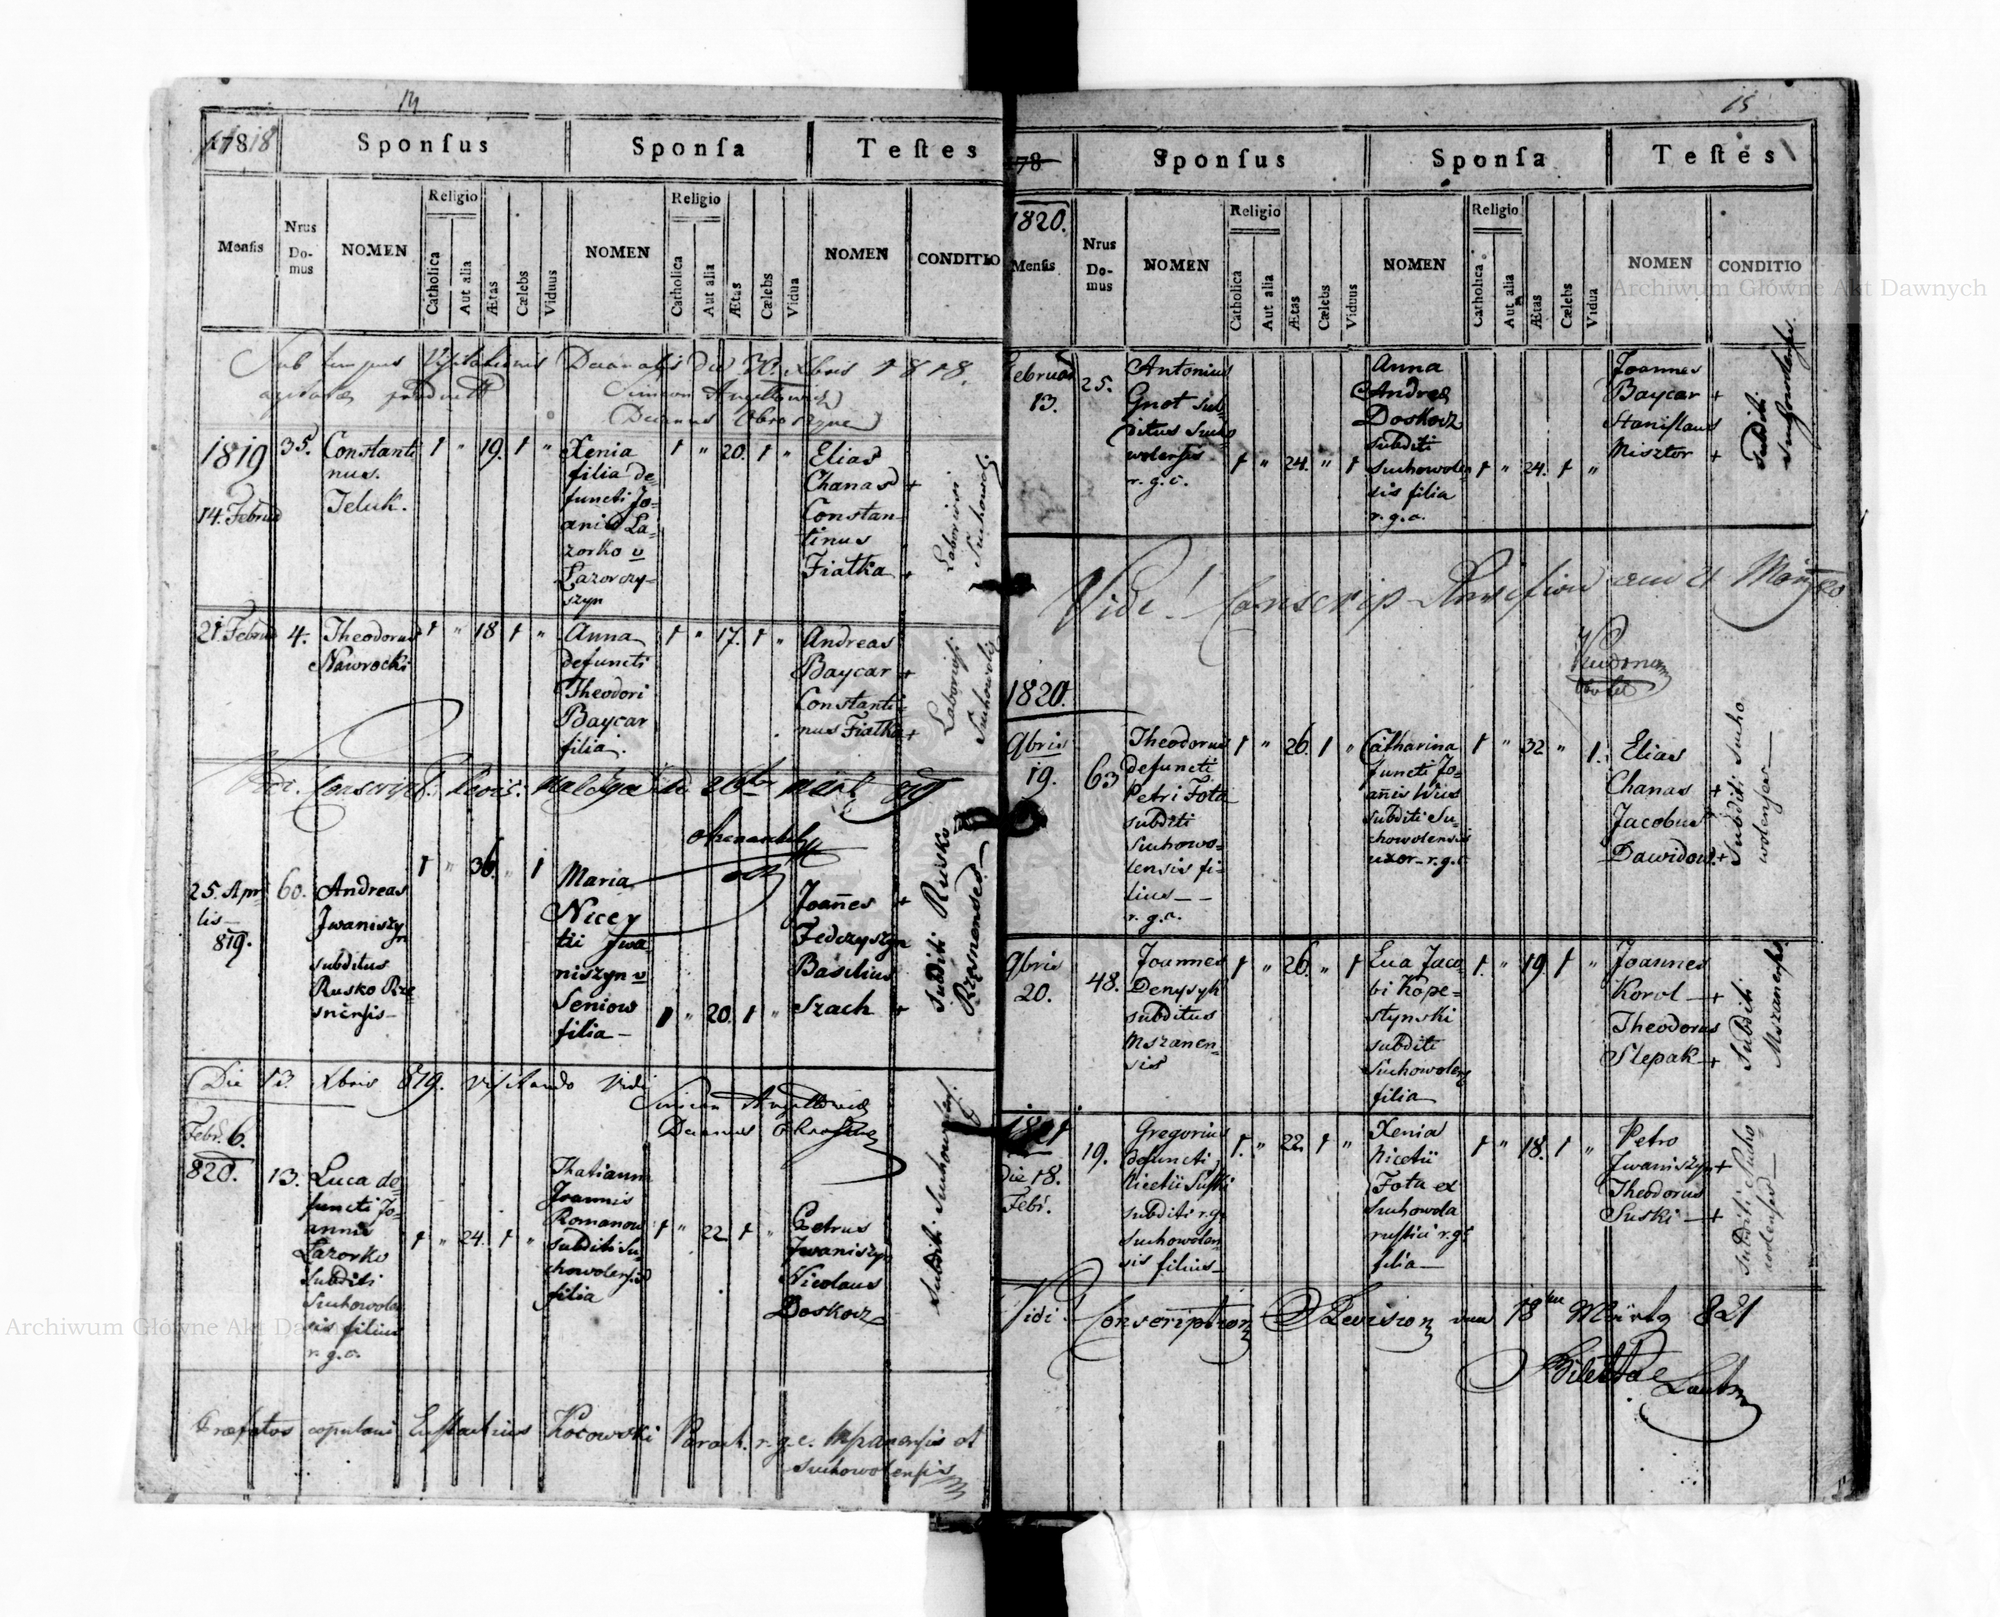 14
1818
Sponſus
Sponſa
Teſtes
Menſis
Nrus
Do-
mus
NOMEN
Religio
Catholica
Aut alia
Ætas
Cælebs
Viduus
NOMEN
Religio
Catholica
Aut alia
Ætas
Cælebs
Vidua
NOMEN
CONDITIO
Sub tempus Visitationis Decanalis die 30. Xbris 1818.
Simeon
Decanus
1819
14. Februa
35.
Constanti
nus
Teluk.
1 " 19. 1 "
Xenia
filia de
functi Jo-
anis La-
zorko v
Lazorczy-
szyn
1 " 20. 1 "
Elias
Chanas +
Constan
tinus
Fiatka +
Laboriosi
Suchowol:
21. Februa
4.
Theodorus
Nawrocki
1 " 18 1 "
Anna
defuncti
Theodori
Baycar
filia.
1 " 17. 1 "
Andreas
Baycar +
Constanti-
nus Fiatka +
Laboriosi
Suchowol
25. Apri
lis
819.
60.
Andreas
Jwaniszyn
subditus
Rusko Rze
snensis
1 " 36. " 1
Maria
Nicey
tii Jwa
niszyn v
Seniow
filia
1 " 20. 1 "
Joañes +
Fedczyszyn
Basilius
Szach +
Subditi Rusko
Rzesnenses
Die 13. Xbris 819. visitando vidi
Simeon
Decanus
Febr. 6.
820.
13.
Luca de-
functi Jo-
annis
Lazorko
subditi
Suchowolen
sis filius
r. g. c.
1 " 24. 1 "
Thatianna
Joannis
Romanow
subditi Su-
chowolensis
filia
1 " 22. 1 "
Petrus
Jwaniszyn
Nicolaus
Doskocz
Subditi Suchowolens.
Præfatos copulavi Eustachius Kocowski Paroch. r. g. c. Mszanensis et
Suchowolensis
15
78
Sponſus
Sponſa
Teſtes
1820.
Menſis
Nrus
Do-
mus
NOMEN
Religio
Catholica
Aut alia
Ætas
Cælebs
Viduus
NOMEN
Religio
Catholica
Aut alia
Ætas
Cælebs
Vidua
NOMEN
CONDITIO
Februar
13.
25.
Antonius
Gnot sub-
ditus Sucho
wolensis
r. g. c.
1 " 24. " 1
Anna
Andrea
Doskocz
subditi
Suchowolen
sis filia
r. g. c.
1 " 24. 1 "
Joannes
Baycar +
Stanislaus
Misztor +
Subditi
Suchowolens.
Vidi!
1820.
9bris
19.
63
Theodorus
defuncti
Petri Fota
subditi
Suchowo-
lensis fi-
lius
r. g. c.
1 " 26. 1 "
Catharina
functi Jo-
añis Wus
subditi Su-
chowolensis
uxor r. g. c
1 " 32 " 1.
Elias
Chanas +
Jacobus
Dawidow +
Subditi Sucho
wolenses
9bris
20.
48.
Joannes
Denysyk
subditus
Mszanen-
sis
1 " 26. " 1
Eva Jaco-
bi Kope-
stynski
subditi
Suchowolens
filia
1. " 19. 1 "
Joannes
Korol +
Theodorus
Slepak +
Subditi
Mszanens.
1821
Die 18.
Febr.
19.
Gregorius
defuncti
Nicetii Suski
subditi r. g.
Suchowolen
sis filius
1. " 22. 1 "
Xenia
Nicetii
Fota ex
Suchowola
rustici r. g.
filia
1 " 18. 1 "
Petro
Jwaniszyn +
Theodorus
Suski +
Subditi Sucho
wolenses
Vidi Conscriptions Revision 18ten März 821
Archiwum Główne Akt Dawnych
Archiwum Główne Akt Dawnych